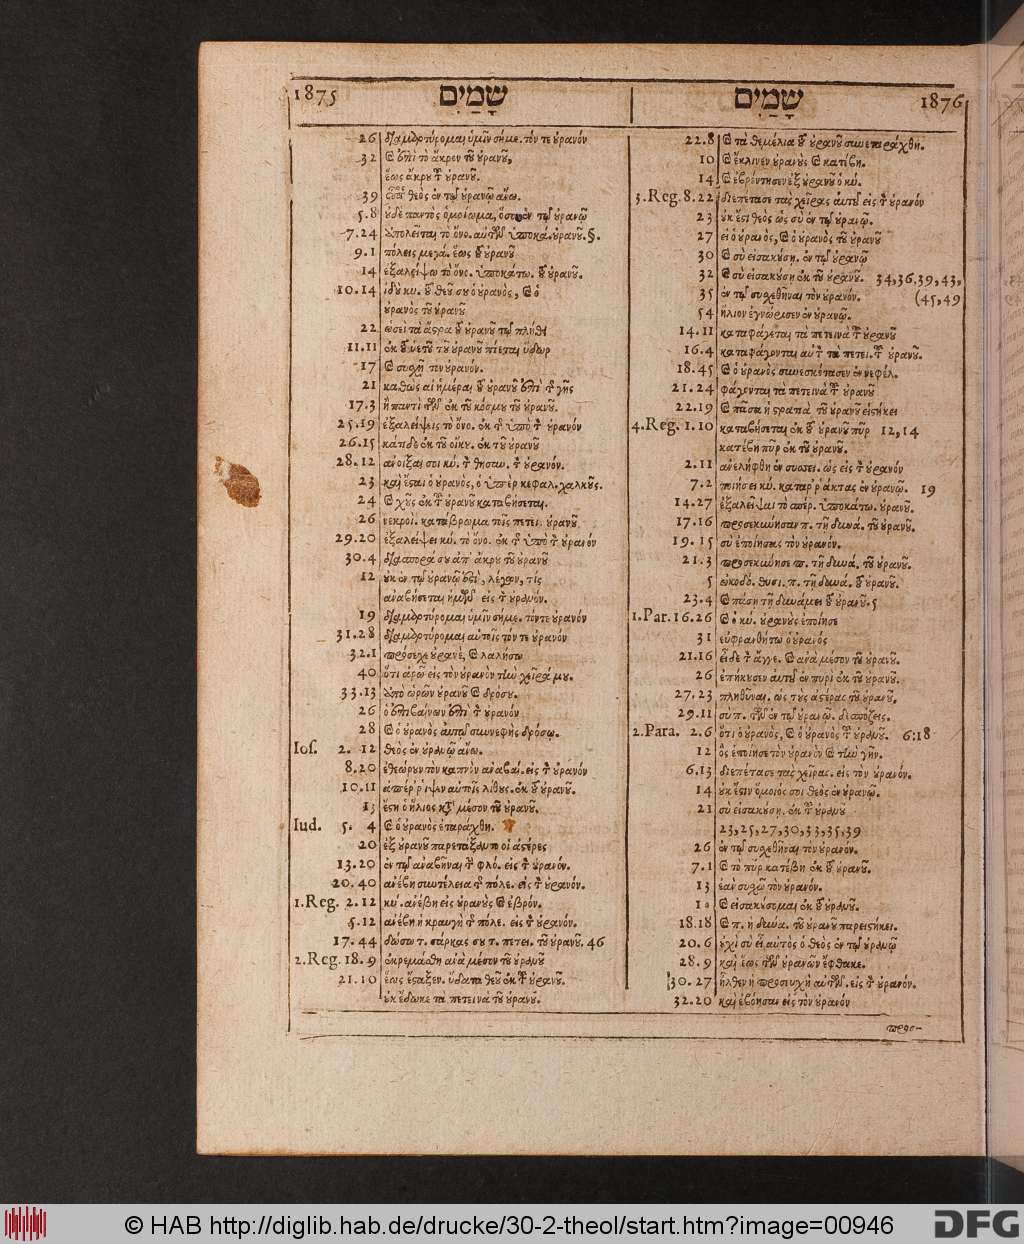 1875 שָׁמַיִם
26 διαμαρτύρομαι ὑμῖν σήμε. τόν τε οὐρανόν
32 ἐπὶ τὸ ἄκρον τοῦ οὐρανοῦ,
ἕως ἄκρου τοῦ οὐρανοῦ.
39 θεὸς ἐν τῷ οὐρανῷ ἄνω.
5.8 οὐδὲ παντὸς ὁμοίωμα, ὅσα ἐν τῷ οὐρανῷ
7.24 τὸ ὄνο. αὐτῶν ὑποκά. οὐρανοῦ. §.
9.1 πόλεις μεγά. ἕως τοῦ οὐρανοῦ
14 ἐξαλείψω τὸ ὄνο. ὑποκάτω. τοῦ οὐρανοῦ.
10.14 ἰδοὺ κυ. τοῦ θεοῦ σου ὁ οὐρανὸς, καὶ ὁ
οὐρανὸς τοῦ οὐρανοῦ
22 ὡσεὶ τὰ ἄστρα τοῦ οὐρανοῦ τῷ πλήθει
11.11 ἐκ τοῦ ὑετοῦ τοῦ οὐρανοῦ πίεται ὕδωρ
17 καὶ συσχῇ τὸν οὐρανόν.
21 καθὼς αἱ ἡμέραι τοῦ οὐρανοῦ ἐπὶ τῆς γῆς
17.3 ἢ παντὶ τῶν ἐκ τοῦ κόσμου τοῦ οὐρανοῦ.
25.19 ἐξαλείψεις τὸ ὄνο. ἐκ τῆς ὑπὸ τὸν οὐρανόν
26.15 κάτιδε ἐκ τοῦ οἴκου. ἐκ τοῦ οὐρανοῦ
28.12 ἀνοίξαι σοι κύ. τὸν θησαυ. τὸν οὐρανόν.
23 καὶ ἔσται ὁ οὐρανὸς, ὁ ὑπὲρ κεφαλ. χαλκοῦς.
24 χοῦς ἐκ τοῦ οὐρανοῦ καταβήσεται.
26 νεκροὶ. κατάβρωμα τοῖς πετει. οὐρανοῦ
29.20 ἐξαλείψει κύ. τὸ ὄνο. ἐκ τῆς ὑπὸ τὸν οὐρανόν
30.4 διασπορά σου ἀπ' ἄκρου τοῦ οὐρανοῦ
12 οὐκ ἐν τῷ οὐρανῷ ἐστὶ, λέγων, τίς
ἀναβήσεται ἡμῶν εἰς τὸν οὐρανόν.
19 διαμαρτύρομαι ὑμῖν σήμε. τόν τε οὐρανόν
31.28 διαμαρτύρομαι αὐτοῖς τόν τε οὐρανόν
32.1 πρόσεχε οὐρανὲ, καὶ λαλήσω
40 ὅτι ἀρῶ εἰς τὸν οὐρανὸν τὴν χεῖρά μου.
33.13 ἀπὸ ὡρῶν οὐρανοῦ καὶ δρόσου.
26 ὁ ἐπιβαίνων ἐπὶ τὸν οὐρανόν
28 καὶ ὁ οὐρανὸς αὐτῷ συννεφὴς δρόσῳ.
Ios. 2. 12 θεὸς ἐν οὐρανῷ ἄνω.
8.20 ἐθεώρουν τὸν καπνὸν ἀναβαί. εἰς τὸν οὐρανόν
10.11 ἐπέρριψεν αὐτοῖς λίθους. ἐκ τοῦ οὐρανοῦ.
13 ἔστη ὁ ἥλιος κατὰ μέσον τοῦ οὐρανοῦ.
Iud. 5. 4 καὶ ὁ οὐρανὸς ἐταράχθη.
20 ἐξ οὐρανοῦ παρετάξαντο οἱ ἀστέρες
13.20 ἐν τῷ ἀναβῆναι τὴν φλό. εἰς τὸν οὐρανόν.
20.40 ἀνέβη συντέλεια τῆς πόλε. εἰς τὸν οὐρανόν.
1.Reg. 2.12 κύ. ἀνέβη εἰς οὐρανοὺς καὶ ἐβρόν.
5.12 ἀνέβη ἡ κραυγὴ τῆς πόλε. εἰς τὸν οὐρανόν.
17.44 δώσω τ. σάρκας σου τ. πετει. τοῦ οὐρανοῦ. 46
2.Reg. 18.9 ἐκρεμάσθη ἀνὰ μέσον τοῦ οὐρανοῦ
21.10 ἕως ἔσταξεν. ὕδατα θεοῦ ἐκ τοῦ οὐρανοῦ.
οὐκ ἔδωκε τὰ πετεινὰ τοῦ οὐρανοῦ.
שָׁמַיִם 1876
22.8 καὶ τὰ θεμέλια τοῦ οὐρανοῦ συνεταράχθη.
10 καὶ ἔκλινεν οὐρανοὺς καὶ κατέβη.
14 καὶ ἐβρόντησεν ἐξ οὐρανοῦ ὁ κύ.
3.Reg. 8.22 διεπέτασε τὰς χεῖρας αὐτοῦ εἰς τὸν οὐρανόν
23 οὐκ ἔστι θεὸς ὡς σὺ ἐν τῷ οὐρανῷ.
27 εἰ ὁ οὐρανὸς, καὶ ὁ οὐρανὸς τοῦ οὐρανοῦ
30 καὶ σὺ εἰσακούσῃ. ἐν τῷ οὐρανῷ
32 καὶ σὺ εἰσακούσῃ ἐκ τοῦ οὐρανοῦ. 34,36,39,43,
35 ἐν τῷ συσχεθῆναι τὸν οὐρανόν. (45,49
54 ἥλιον ἐγνώρισεν ἐν οὐρανῷ.
14.11 καταφάγεται τὰ πετεινὰ τοῦ οὐρανοῦ
16.4 καταφάγονται αὐτὸν τὰ πετει. τοῦ οὐρανοῦ.
18.45 καὶ ὁ οὐρανὸς συνεσκότασεν ἐν νεφέλ.
21.24 φάγονται τὰ πετεινὰ τοῦ οὐρανοῦ
22.19 καὶ πᾶσα ἡ στρατιὰ τοῦ οὐρανοῦ εἱστήκει
4.Reg. 1.10 καταβήσεται ἐκ τοῦ οὐρανοῦ πῦρ 12,14
κατέβη πῦρ ἐκ τοῦ οὐρανοῦ.
2.11 ἀνελήφθη ἐν συσσει. ὡς εἰς τὸν οὐρανόν
7.2 ποιήσει κύ. καταρράκτας ἐν οὐρανῷ. 19
14.27 ἐξαλεῖψαι τὸ σπέρ. ὑποκάτω. οὐρανοῦ.
17.16 προσεκύνησαν π. τῇ δυνά. τοῦ οὐρανοῦ.
19.15 σὺ ἐποίησας τὸν οὐρανόν.
21.3 προσεκύνησε π. τῇ δυνά. τοῦ οὐρανοῦ.
5 ᾠκοδό. θυσι. π. τῇ δυνά. τοῦ οὐρανοῦ.
23.4 καὶ πάσῃ τῇ δυνάμει τοῦ οὐρανοῦ. 5
1.Par. 16.26 καὶ ὁ κύ. οὐρανοὺς ἐποίησε
31 εὐφρανθήτω ὁ οὐρανός
21.16 εἶδε τὸν ἄγγε. καὶ ἀνὰ μέσον τοῦ οὐρανοῦ.
26 ἐπήκουσεν αὐτοῦ ἐν πυρὶ ἐκ τοῦ οὐρανοῦ.
27.23 πληθῦναι. ὡς τοὺς ἀστέρας τοῦ οὐρανοῦ.
29.11 σὺ π. τῶν ἐν τῷ οὐρανῷ. δεσπόζεις.
2.Para. 2.6 ὅτι ὁ οὐρανὸς, καὶ ὁ οὐρανὸς τοῦ οὐρανοῦ. 6:18
12 ὃς ἐποίησε τὸν οὐρανὸν καὶ τὴν γῆν.
6.13 διεπέτασε τὰς χεῖρας. εἰς τὸν οὐρανόν.
14 οὐκ ἔστιν ὅμοιός σοι θεὸς ἐν οὐρανῷ.
21 σὺ εἰσακούσῃ. ἐκ τοῦ οὐρανοῦ
23,25,27,30,33,35,39
26 ἐν τῷ συσχεθῆναι τὸν οὐρανόν.
7.1 καὶ τὸ πῦρ κατέβη ἐκ τοῦ οὐρανοῦ.
13 ἐὰν συσχῶ τὸν οὐρανόν.
1 καὶ εἰσακούσομαι ἐκ τοῦ οὐρανοῦ.
18.18 καὶ π. ἡ δυνά. τοῦ οὐρανοῦ παρειστήκει.
20.6 οὐχὶ σὺ εἶ αὐτὸς ὁ θεὸς ἐν τῷ οὐρανῷ
28.9 καὶ ἕως τῶν οὐρανῶν ἔφθακε.
30.27 ἦλθεν ἡ προσευχὴ αὐτῶν. εἰς τὸν οὐρανόν.
32.20 καὶ ἐβόησαν εἰς τὸν οὐρανόν
προσ-
© HAB http://diglib.hab.de/drucke/30-2-theol/start.htm?image=00946
DFG